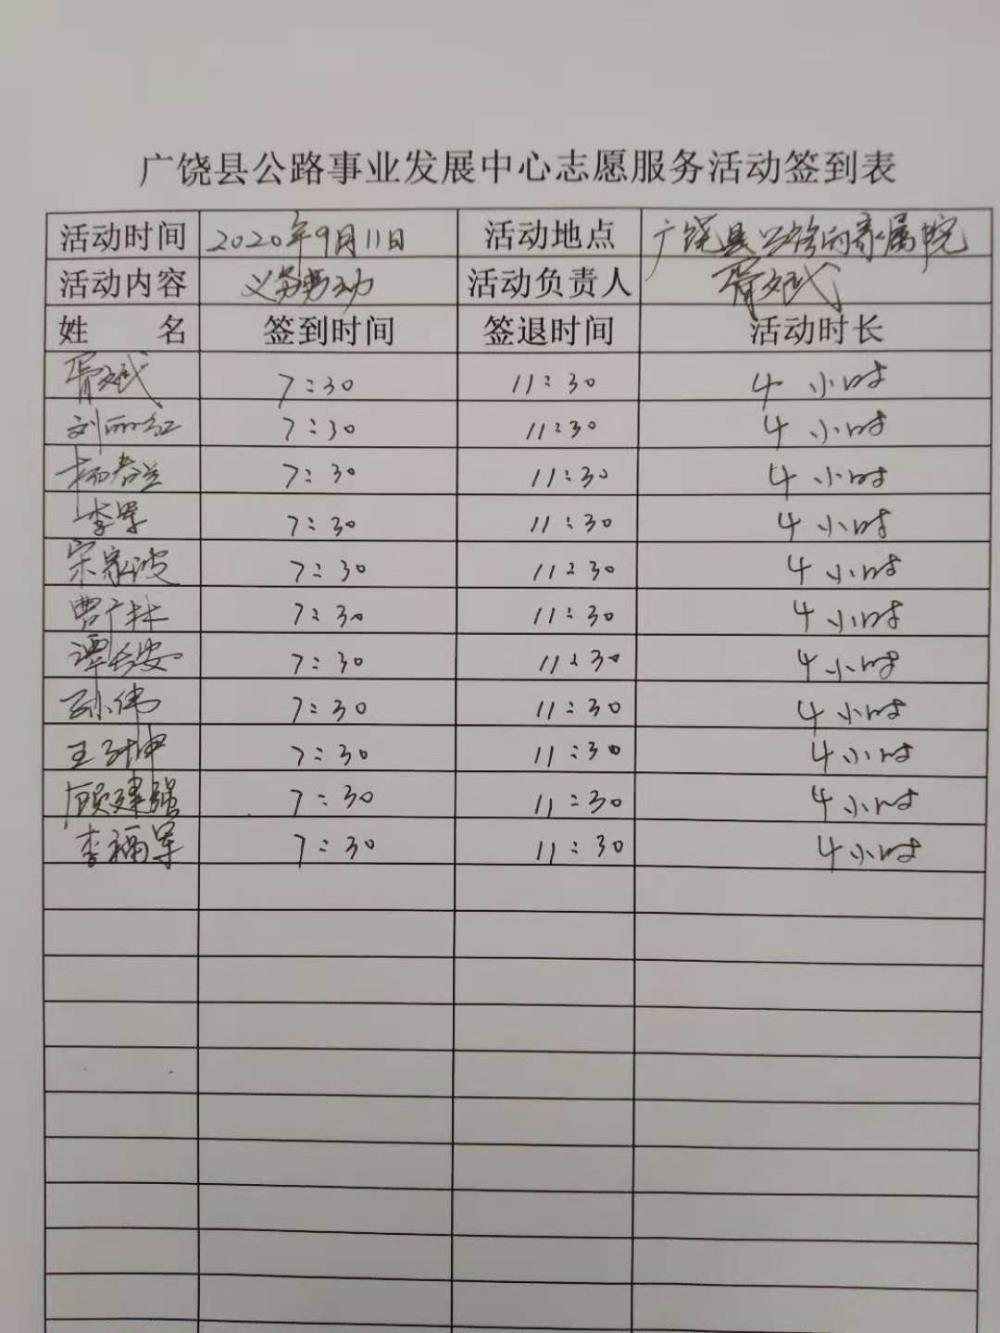 广饶县公路事业发展中心志愿服务活动签到表
活动时间 2020年9月11日 活动地点 广饶县公路局家属院
活动内容 义务劳动 活动负责人 胥文斌
姓 名 签到时间 签退时间 活动时长
胥文斌 7:30 11:30 4小时
刘丽红 7:30 11:30 4小时
杨春兰 7:30 11:30 4小时
李军 7:30 11:30 4小时
宋家波 7:30 11:30 4小时
曹广林 7:30 11:30 4小时
谭长安 7:30 11:30 4小时
孙伟 7:30 11:30 4小时
王 坤 7:30 11:30 4小时
顾建强 7:30 11:30 4小时
李福军 7:30 11:30 4小时